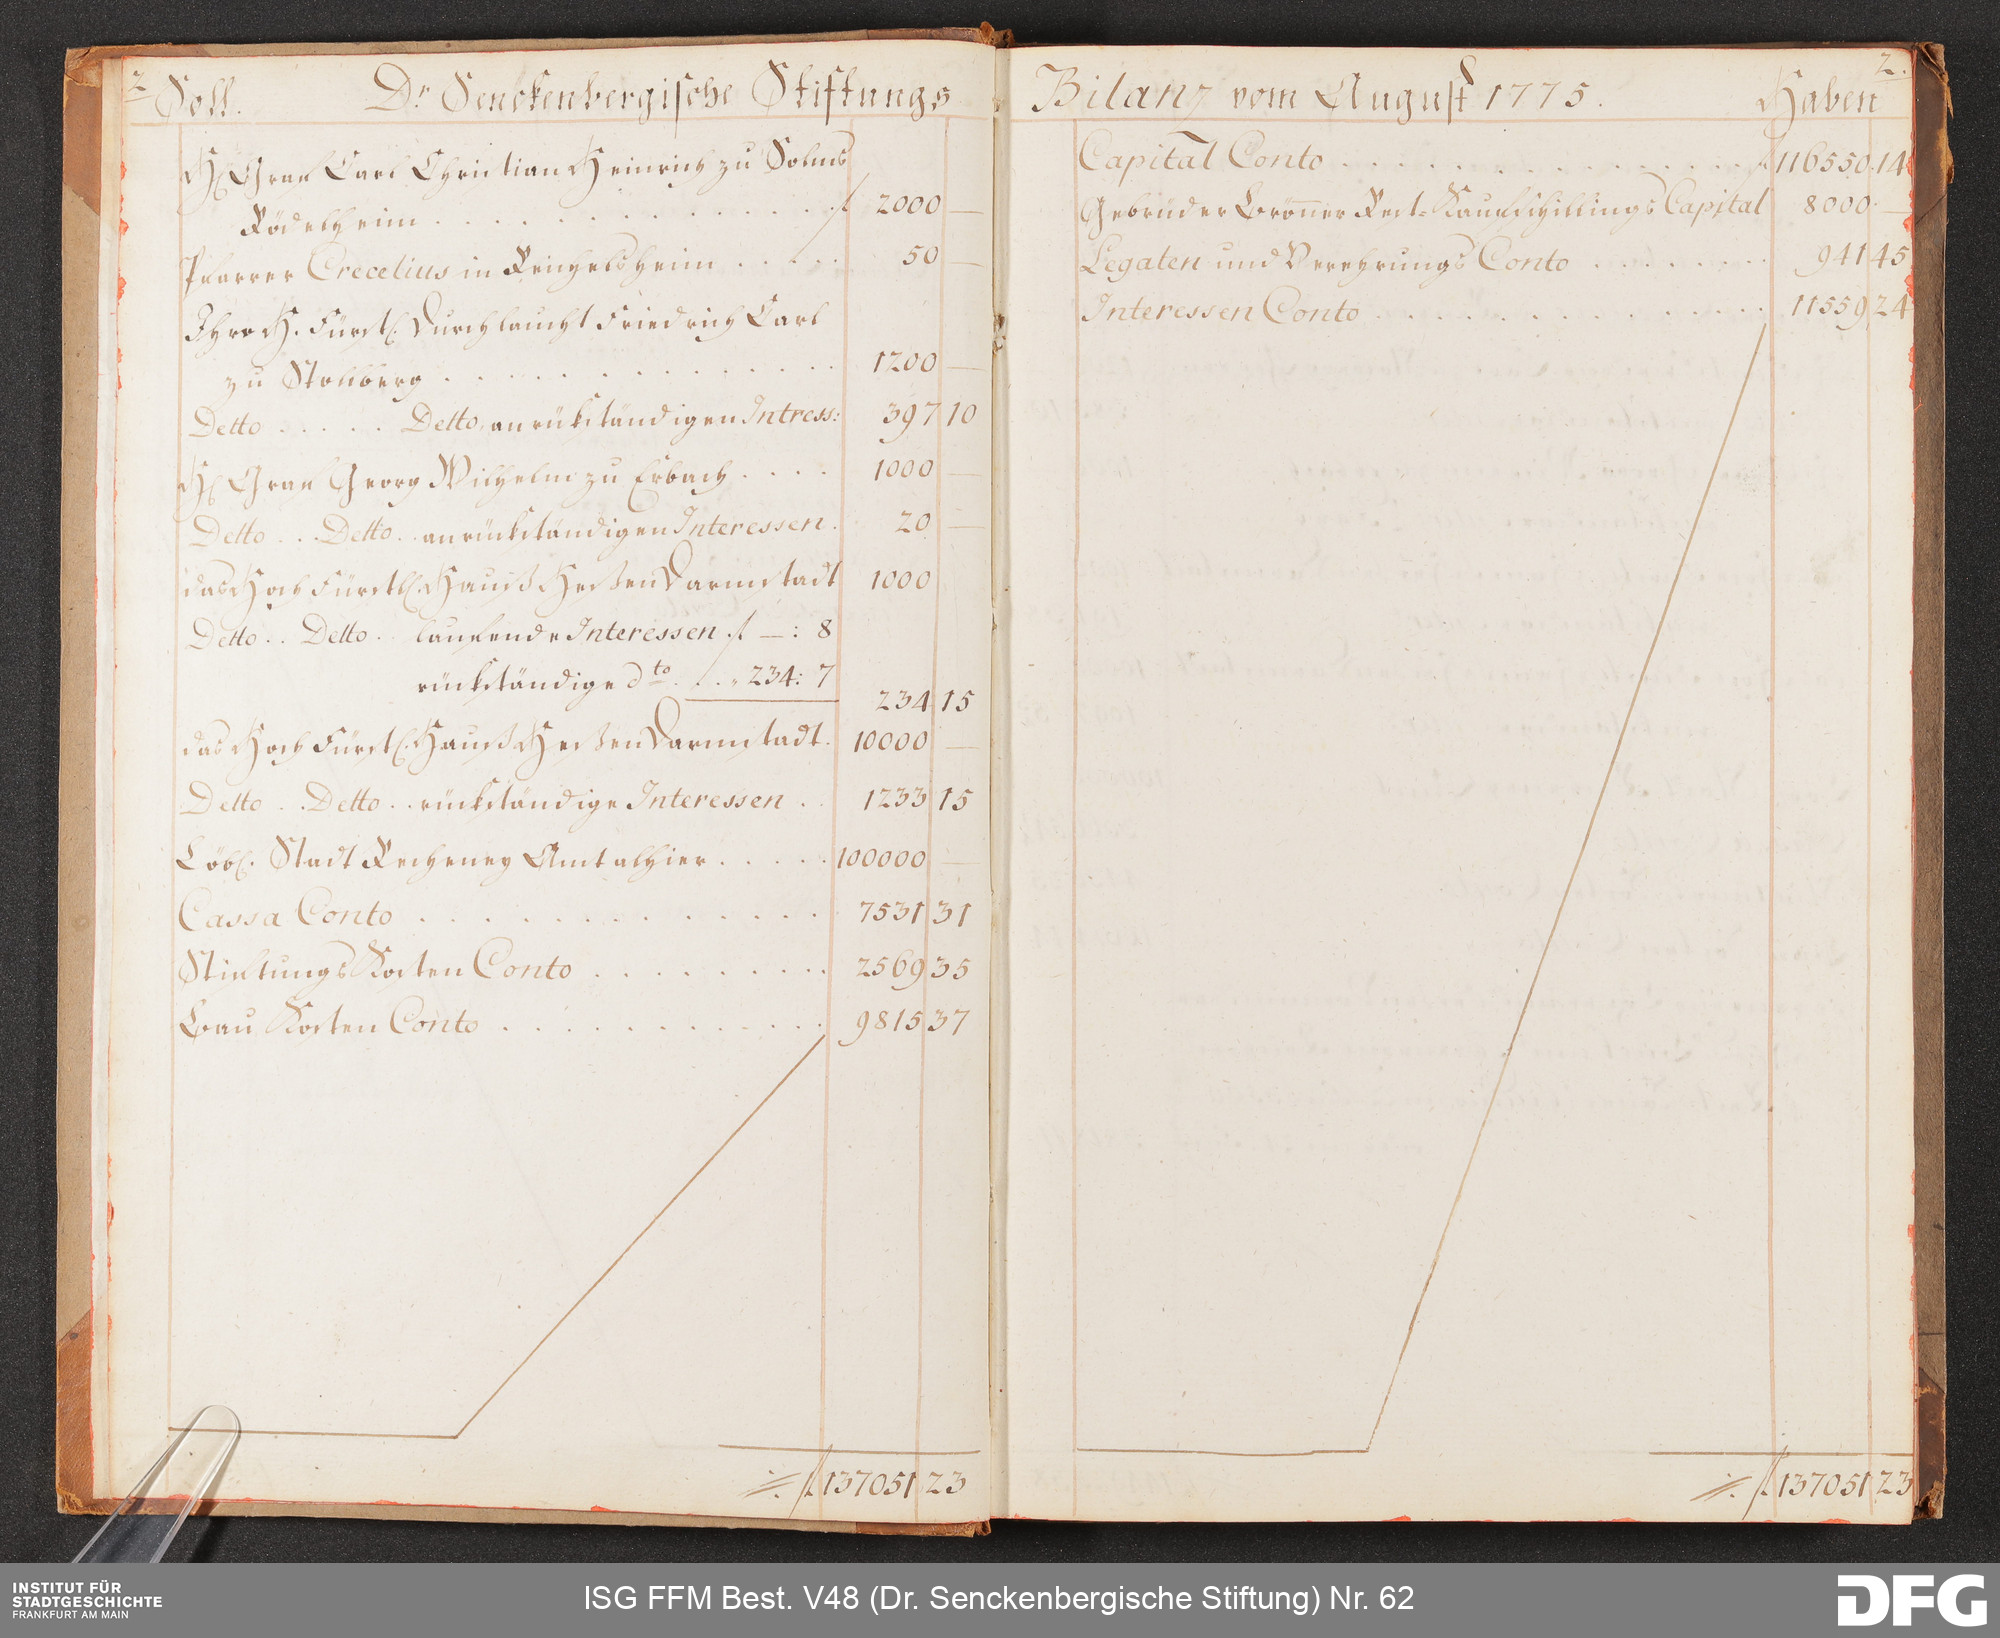 2
Soll.
Dr Senckenbergische Stiftungs
H. Graf Carl Christian Heinrich zu Solms
Rödelheim . . . . . . . . . . . . . f 2000 —
Pfarrer Crecelius in Reichelsheim . . . . . 50 —
Ihro H. Fürstl. Durchlaucht Friedrich Carl
zu Stollberg . . . . . . . . . . . . . 1200 —
Detto . . . . . Detto, an rükständigen Intress: 397 10
H. Graf Georg Wilhelm zu Erbach . . . . 1000 —
Detto . . . Detto . . an rückständigen Interessen . 20 —
das Hoch Fürstl. Hauß Heßen Darmstadt 1000
Detto . . Detto . . laufende Interessen f — : 8
rückständige dto . . . „ 234: 7
234 15
das Hoch Fürstl. Hauß Heßen Darmstadt . 10000 —
Detto . . Detto . . rückständige Interessen . . 1233 15
Löbl. Stadt Recheney Amt alhier . . . . . 100000 —
Cassa Conto . . . . . . . . . . . . . 7531 31
Stiftungs Kosten Conto . . . . . . . . 2569 35
Bau Kosten Conto . . . . . . . . . . . 9815 37
f 137051 23
2.
Bilanz vom August 1775.
Haben
Capital Conto . . . . . . . . . . . . . f 116550 14
Gebrüder Brönner Rest-Kaufschillings Capital 8000 —
Legaten und Verehrungs Conto . . . . . . . 941 45
Interessen Conto . . . . . . . . . . . . . 11559 24
f 137051 23
INSTITUT FÜR
STADTGESCHICHTE
FRANKFURT AM MAIN
ISG FFM Best. V48 (Dr. Senckenbergische Stiftung) Nr. 62
DFG